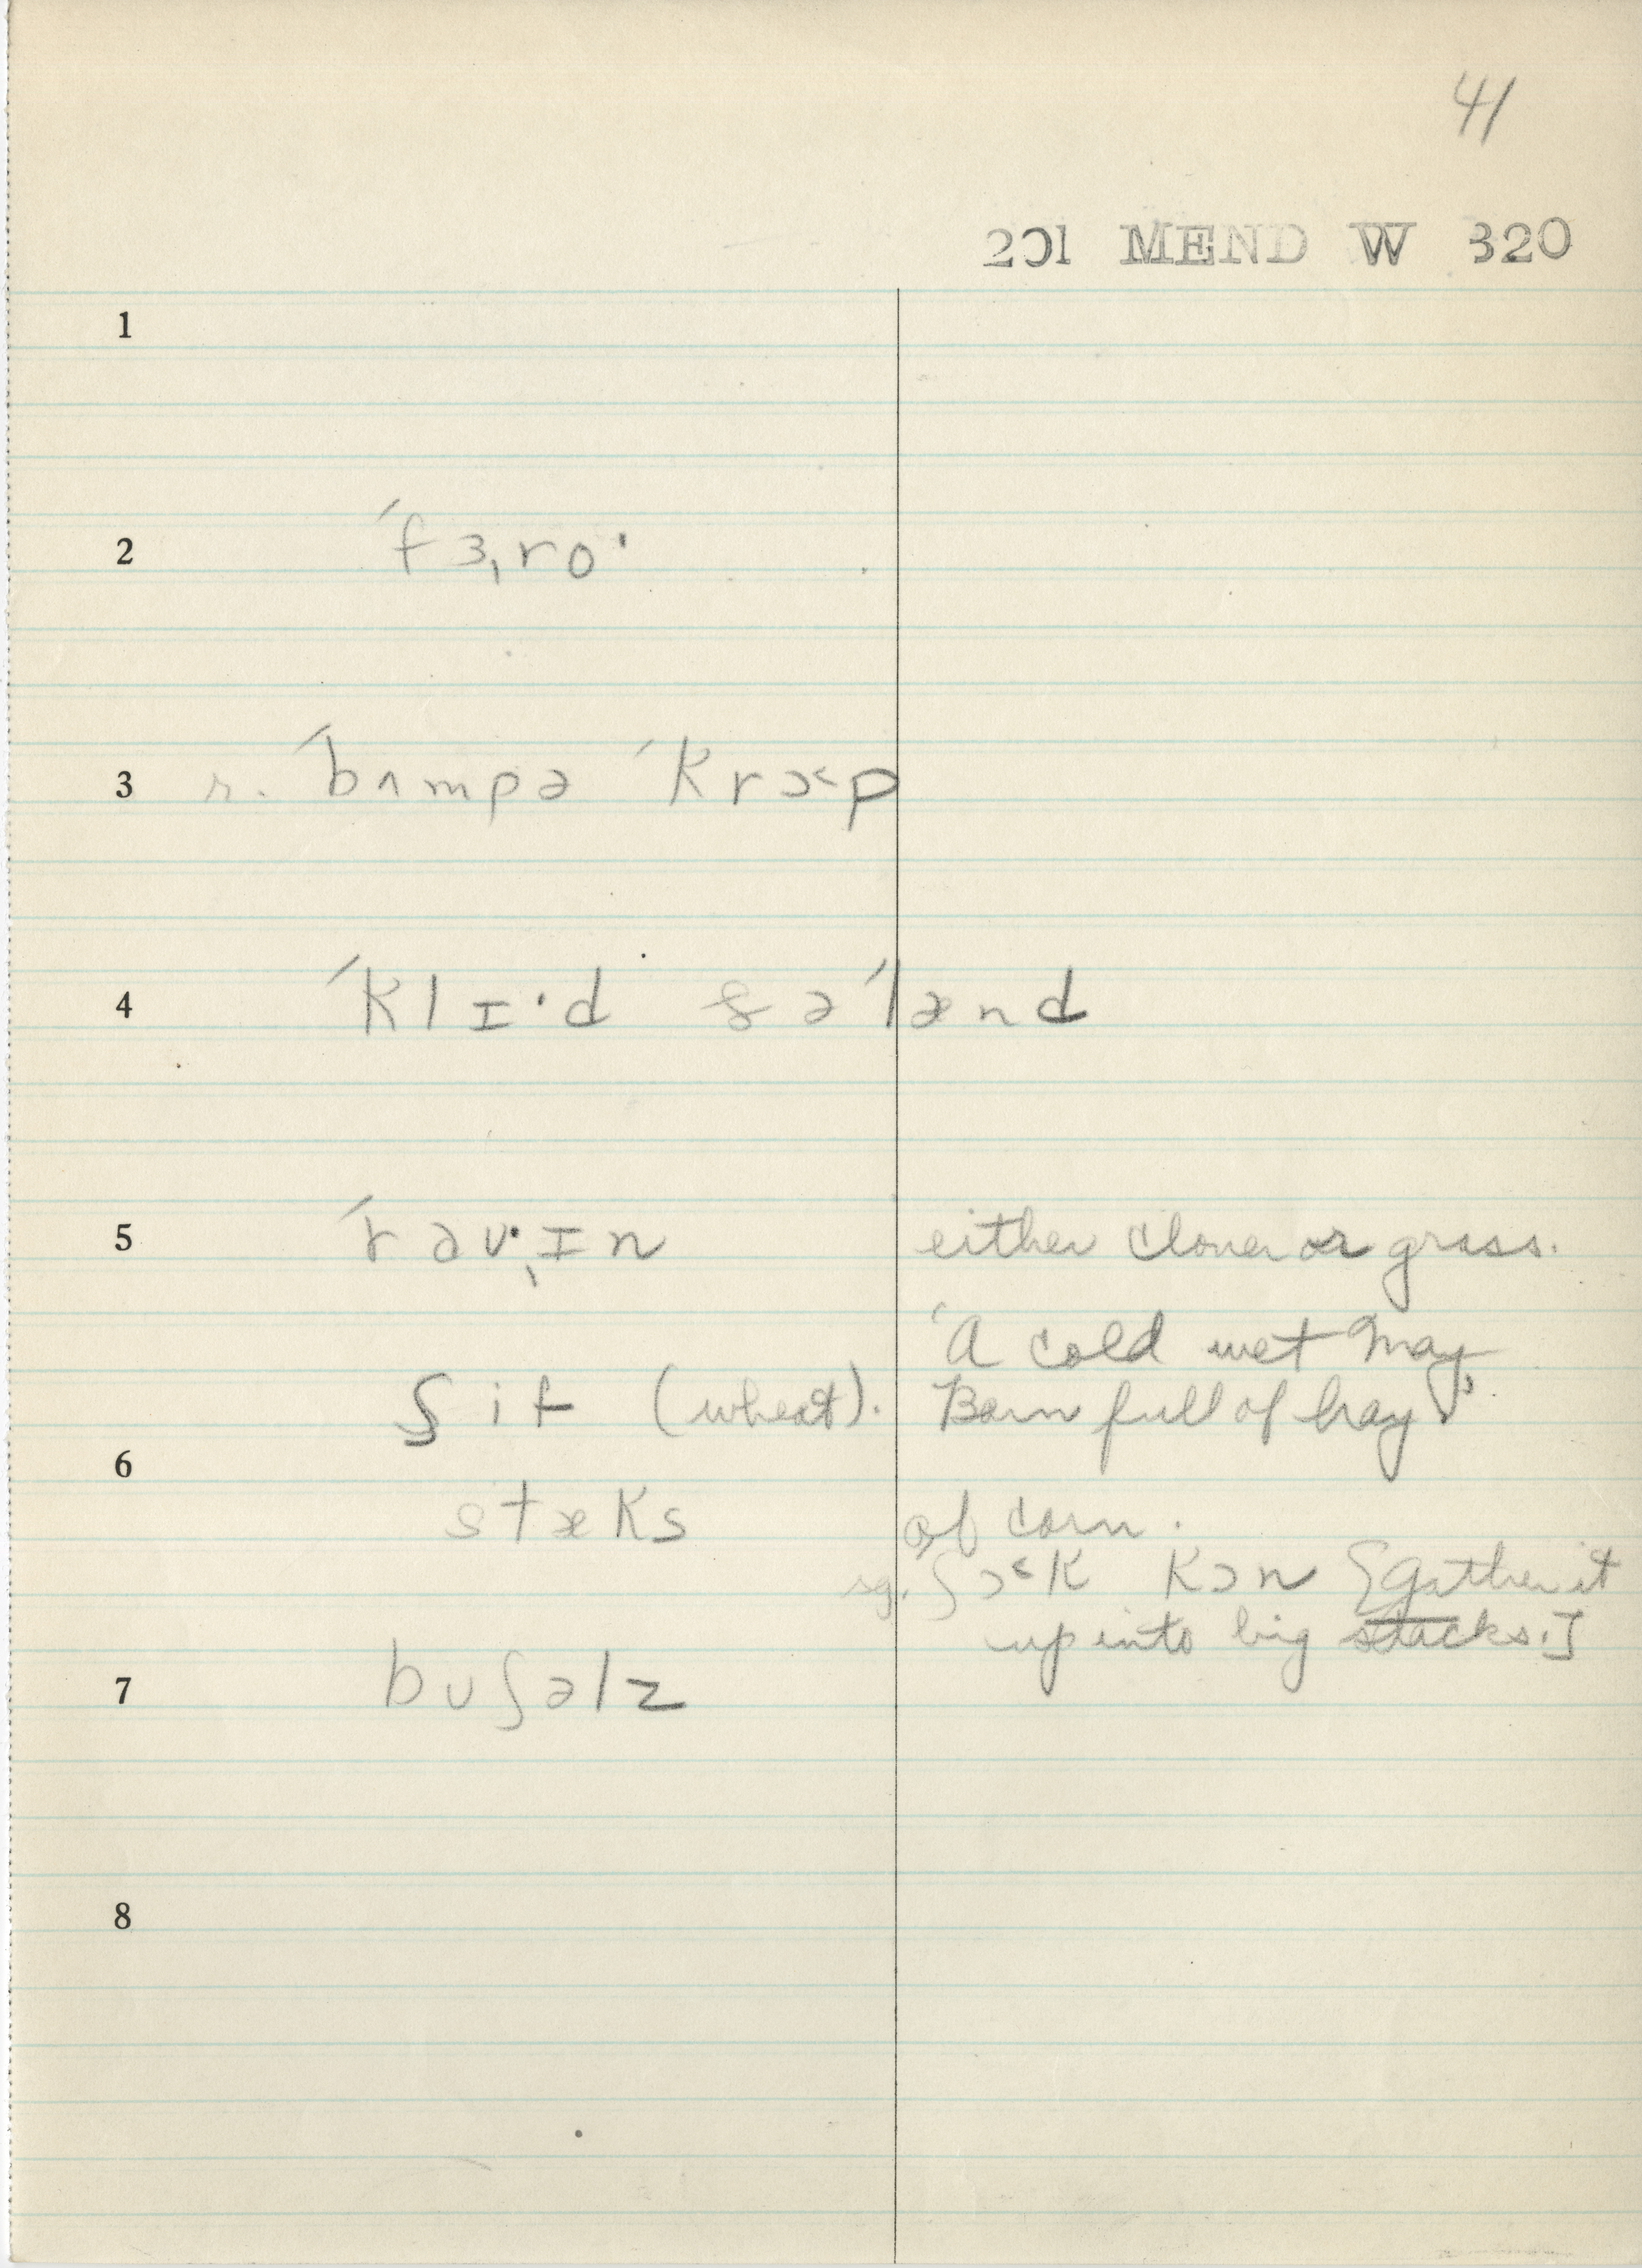 41
201 MEND W 320
1
2 ˈfɜˌroˑ
3 r. ˈbʌmpə ˈkrɔ˂p
4 ˈklɪˑd ʂəˈlænd
5 ˈrəvˑˌɪn either clover or grass.
'A cold wet May,
ʃif (wheat). Barn full of hay'.
6
stæks of corn.
sg. ʃɔ˂k kɔn [Gather it
up into big stacks.]
7 bʊʃəlz
8